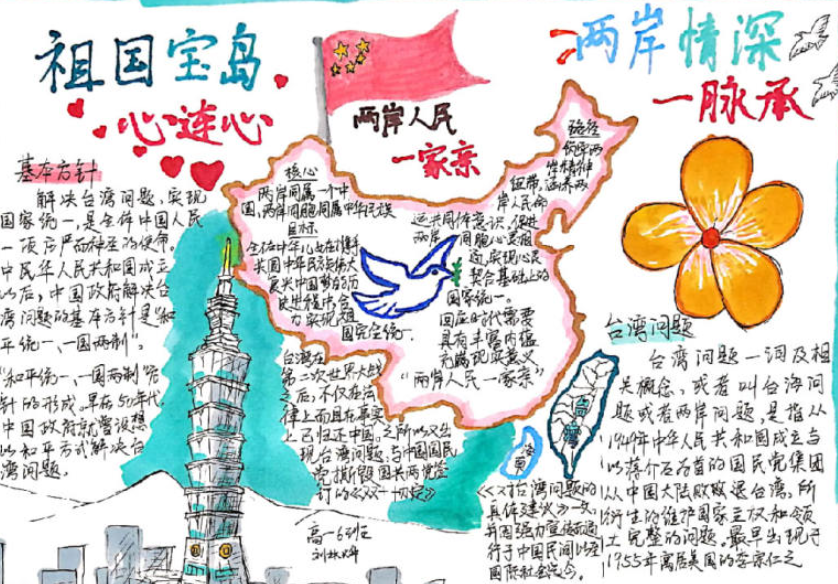 祖国宝岛
心连心
两岸人民
一家亲
两岸情深
一脉承
基本方针
解决台湾问题,实现
国家统一,是全体中国人民
一项庄严而神圣的使命。
中民华人民共和国成立
以后,中国政府解决台
湾问题的基本方针是“和
平统一、一国两制”。
“和平统一、一国两制”
针的形成。早在50年代,
中国政府就曾设想
以和平方式解决台
湾问题。
核心
两岸同属一个中
国,两岸同胞同属中华民族
目标
共圆中华民族伟大
复兴中国梦的历
史进程中,合
力实现祖
国完全统一。
路径
纽带,
岸人民命
运共同体意识,促进
两岸同胞心灵相
通,实现心灵
契合基础上的
国家统一。
回应时代需要
具有丰富内蕴
充满现实意义
“两岸人民一家亲”
台湾在
第二次世界大战
之后,不仅在法
律上而且在事实
上已归还中国,之所以又出
现台湾问题,与中国国民
党撕毁国共两党签
订的《双十协定》
高一6班
台湾
海南
《对台湾问题的
具体建议》一文,
并因强力宣传而通
行于中国民间以至
国际社会
台湾问题
台湾问题一词及相
关概念,或者叫台海问
题或者两岸问题,是指从
1949年中华人民共和国成立与
以蒋介石为首的国民党集团
从中国大陆败退台湾,所
衍生的维护国家主权和领
土完整的问题。最早出现于
1955年寓居美国的李宗仁之